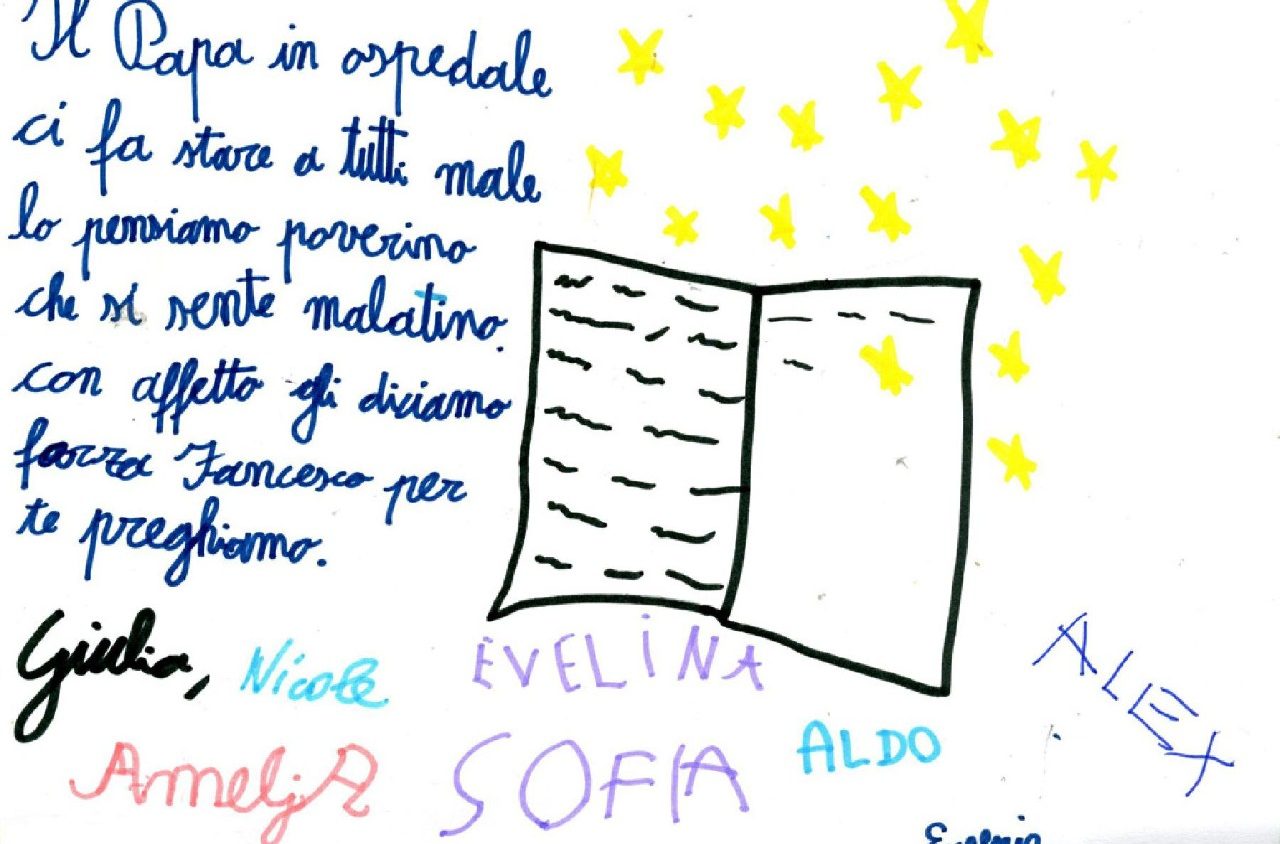 Il Papa in ospedale
ci fa stare a tutti male
lo pensiamo poverino
che si sente malatino.
con affetto gli diciamo
forza Fancesco per
te preghiamo.
Giulia, Nicole
EVELINA
ALEX
AmeljA
SOFIA
ALDO